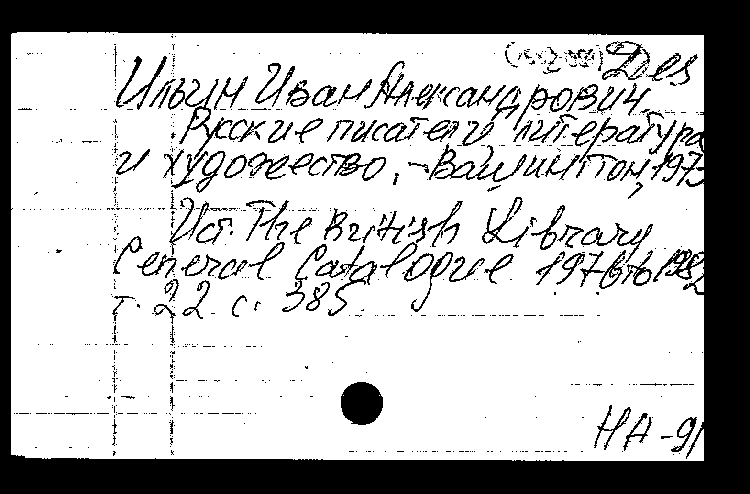 Des
Ильин Иван Александрович
Русские писатели литература
и художество, - Вашингтон, 1973
Ист. The British Library
General Catalogue 1976 to 1982
т. 22 с. 385
НА-91